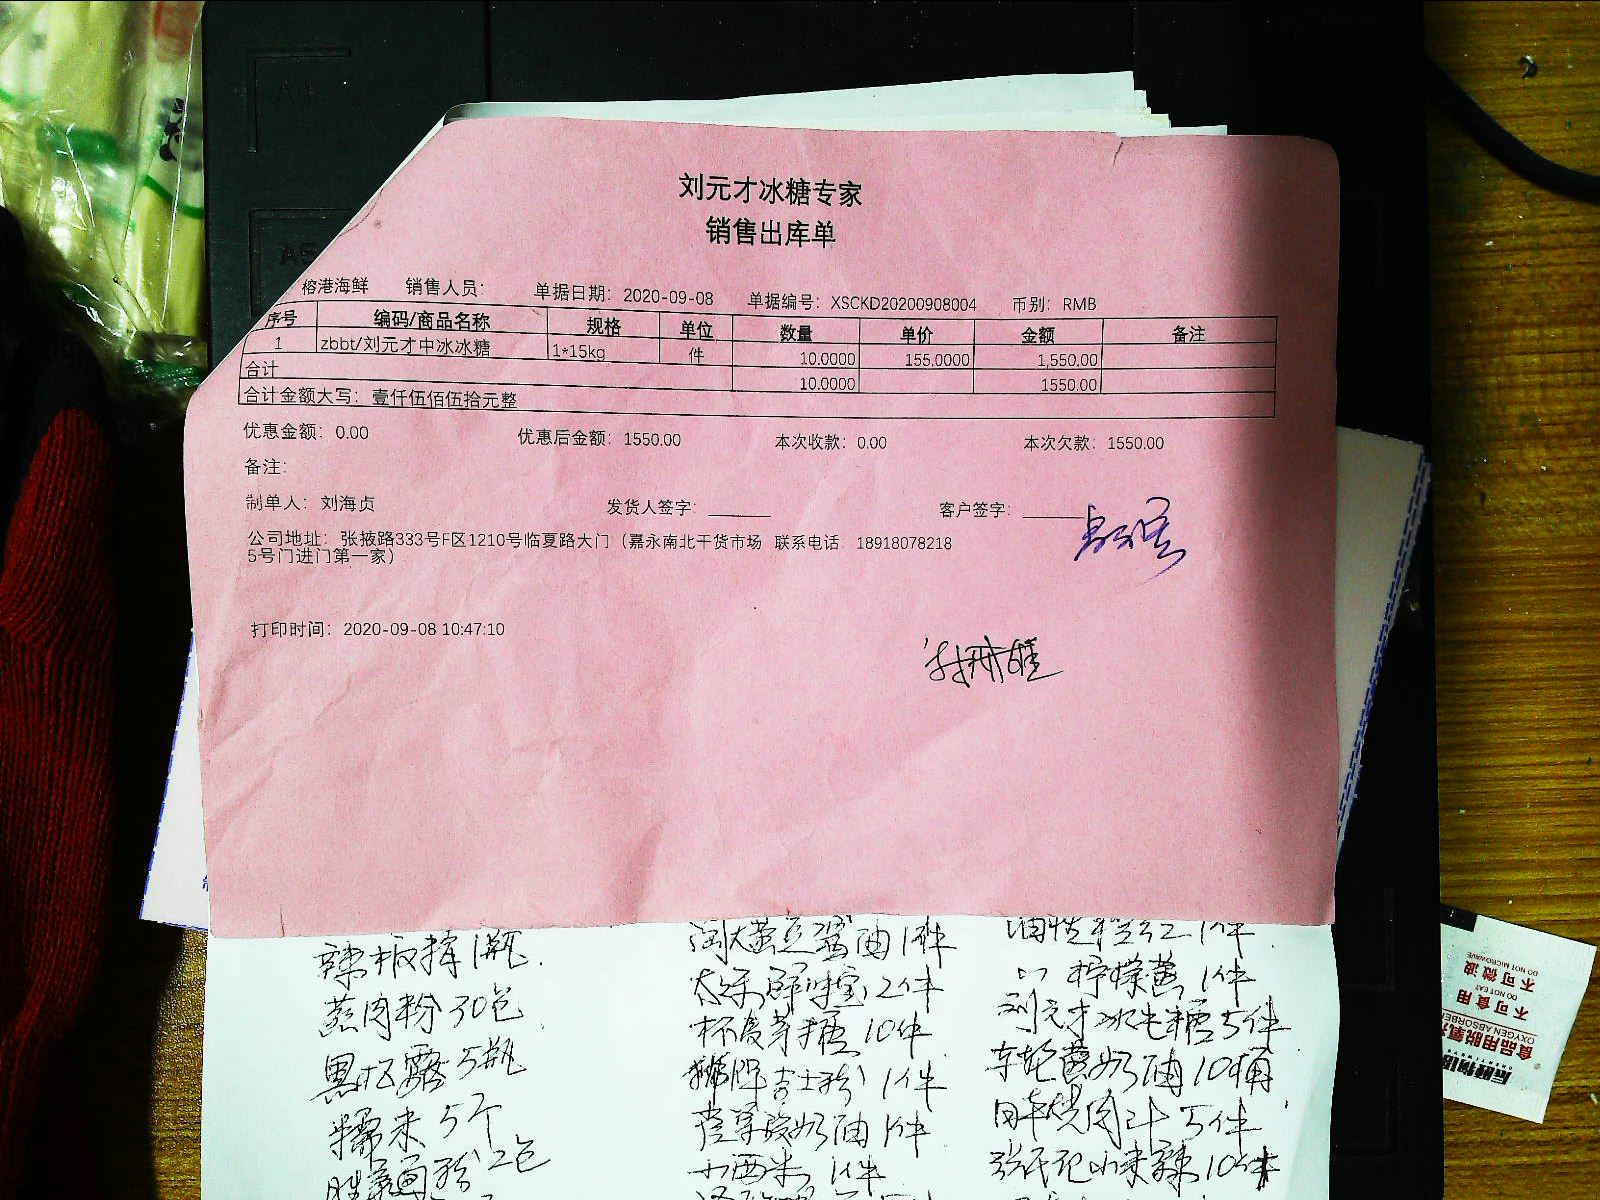 刘元才冰糖专家
销售出库单
榕港海鲜 销售人员: 单据日期: 2020-09-08 单据编号: XSCKD20200908004 币别: RMB
序号 编码/商品名称 规格 单位 数量 单价 金额 备注
1 zbbt/刘元才中冰冰糖 1*15kg 件 10.0000 155.0000 1,550.00
合计 10.0000 1550.00
合计金额大写: 壹仟伍佰伍拾元整
优惠金额: 0.00 优惠后金额: 1550.00 本次收款: 0.00 本次欠款: 1550.00
备注:
制单人: 刘海贞 发货人签字: 客户签字:
公司地址: 张掖路333号F区1210号临夏路大门(嘉永南北干货市场 联系电话: 18918078218
5号门进门第一家)
打印时间: 2020-09-08 10:47:10
蒸肉粉30包
5瓶
糯米5个
2包
黄豆酱油1件
太太乐鲜味宝2件
麦芽糖10件
吉士粉1件
奶油1件
小西米1件
1件
柠檬黄1件
刘元才冰片糖5件
车轮黄奶油10桶
日本烧肉汁5件
小米辣10件
A4
A5
不可微波
DO NOT MICROWAVE
不可食用
DO NOT EAT
食品用脱氧剂